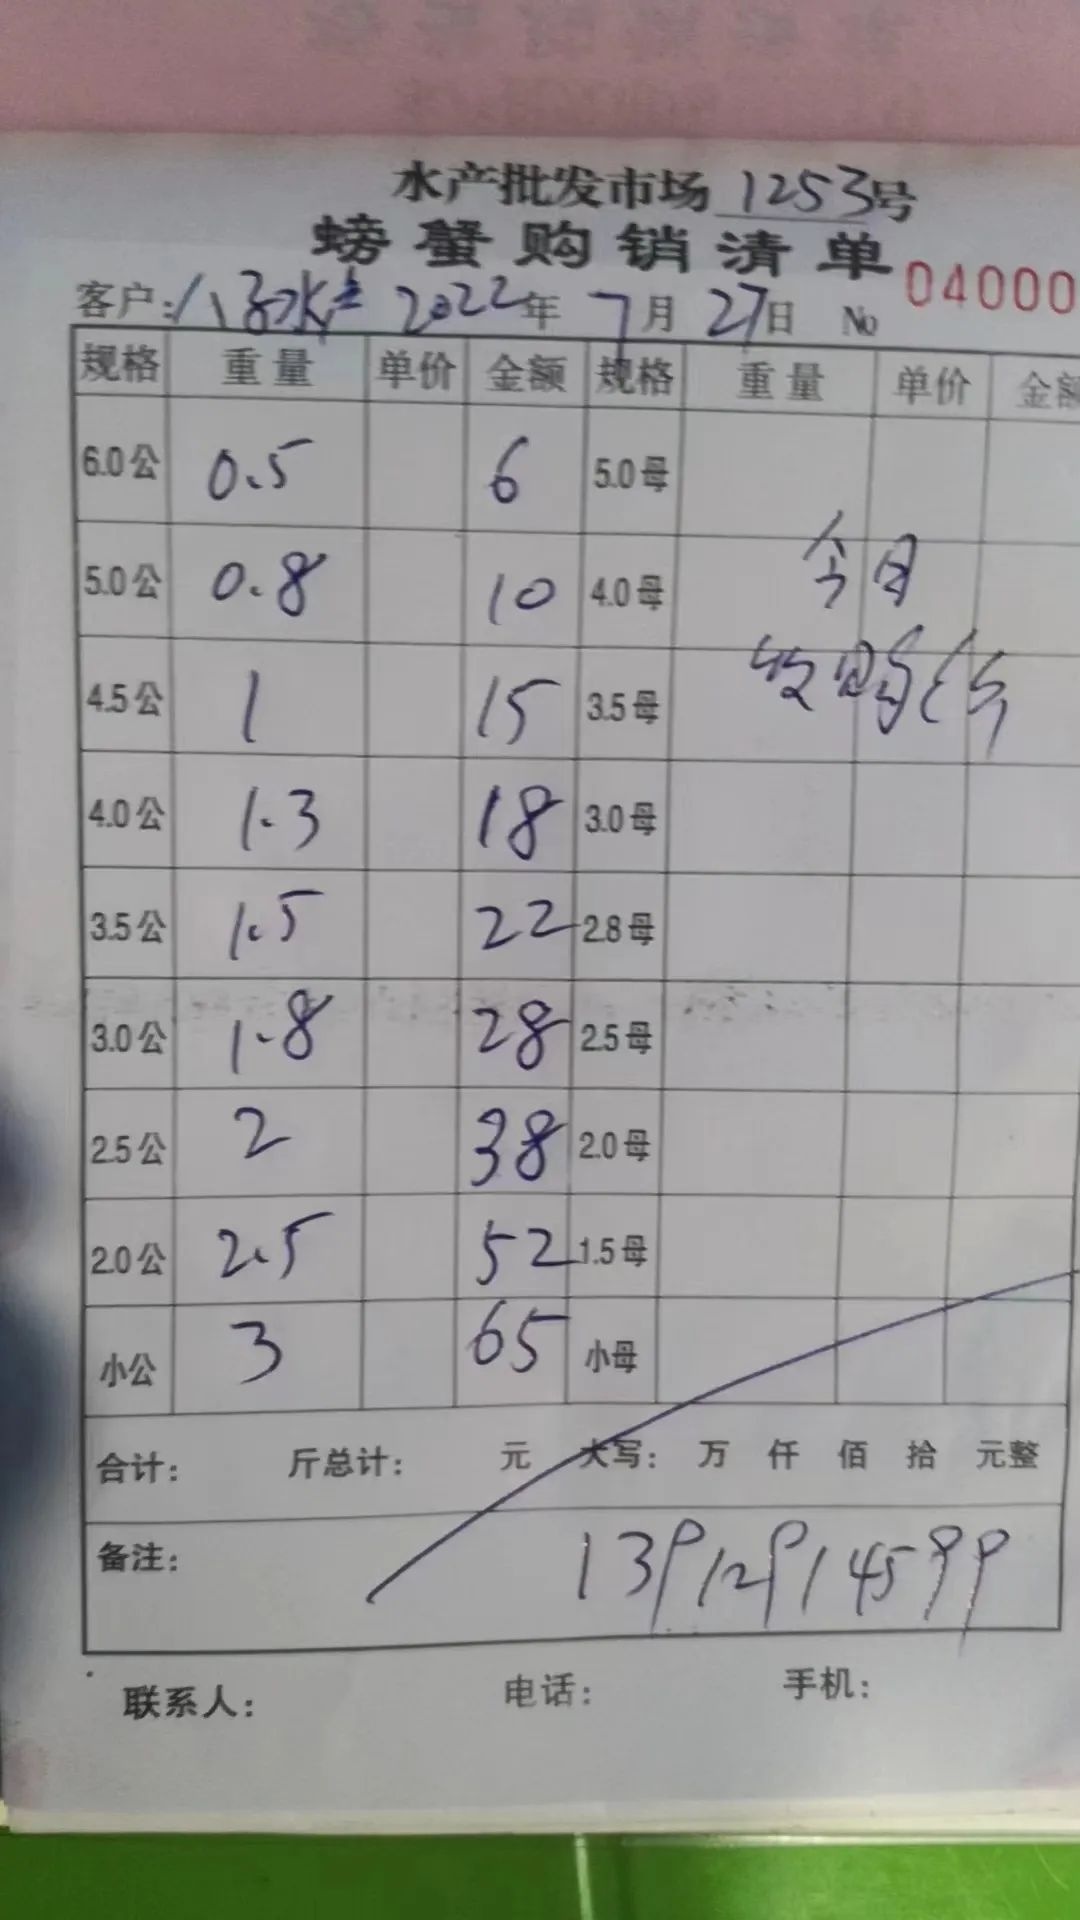 水产批发市场 1253号
螃蟹购销清单
客户: 八子水产 2022年 7月 27日 No 04000
规格 重量 单价 金额 规格 重量 单价 金额
6.0公 0.5 6 5.0母
5.0公 0.8 10 4.0母 今日
4.5公 1 15 3.5母 收购价
4.0公 1.3 18 3.0母
3.5公 1.5 22 2.8母
3.0公 1.8 28 2.5母
2.5公 2 38 2.0母
2.0公 2.5 52 1.5母
小公 3 65 小母
合计: 斤总计: 元 大写: 万 仟 佰 拾 元整
备注: 13912914599
联系人: 电话: 手机: